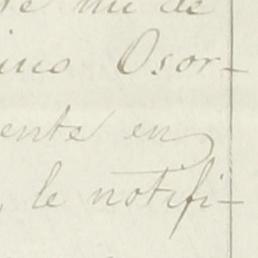 de
ino Osor-
ente en
, le notifi-